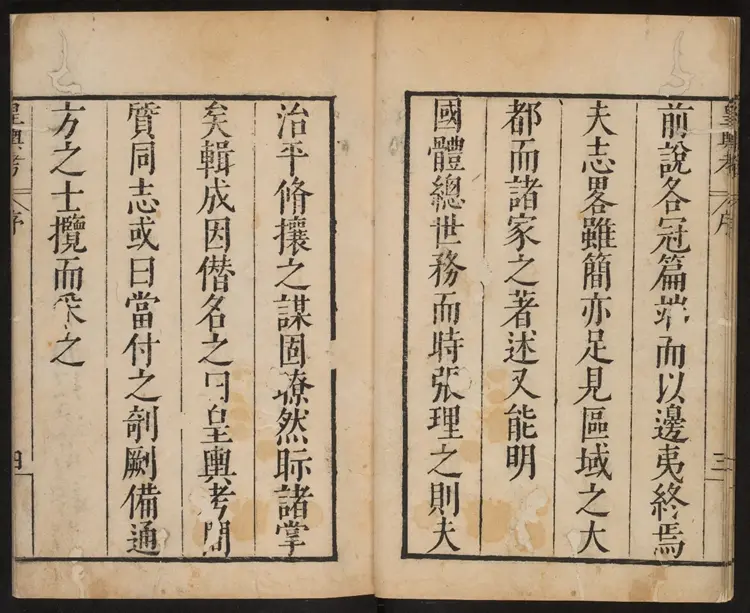 皇輿考
序
三
前說各冠篇端而以邊夷終焉
夫志畧雖簡亦足見區域之大
都而諸家之著述又能明
國體總世務而時張理之則夫
治平脩攘之謀固瞭然眎諸掌
矣輯成因僭名之曰皇輿考間
質同志或曰當付之剞劂備通
方之士攬而采之
皇輿考
序
四